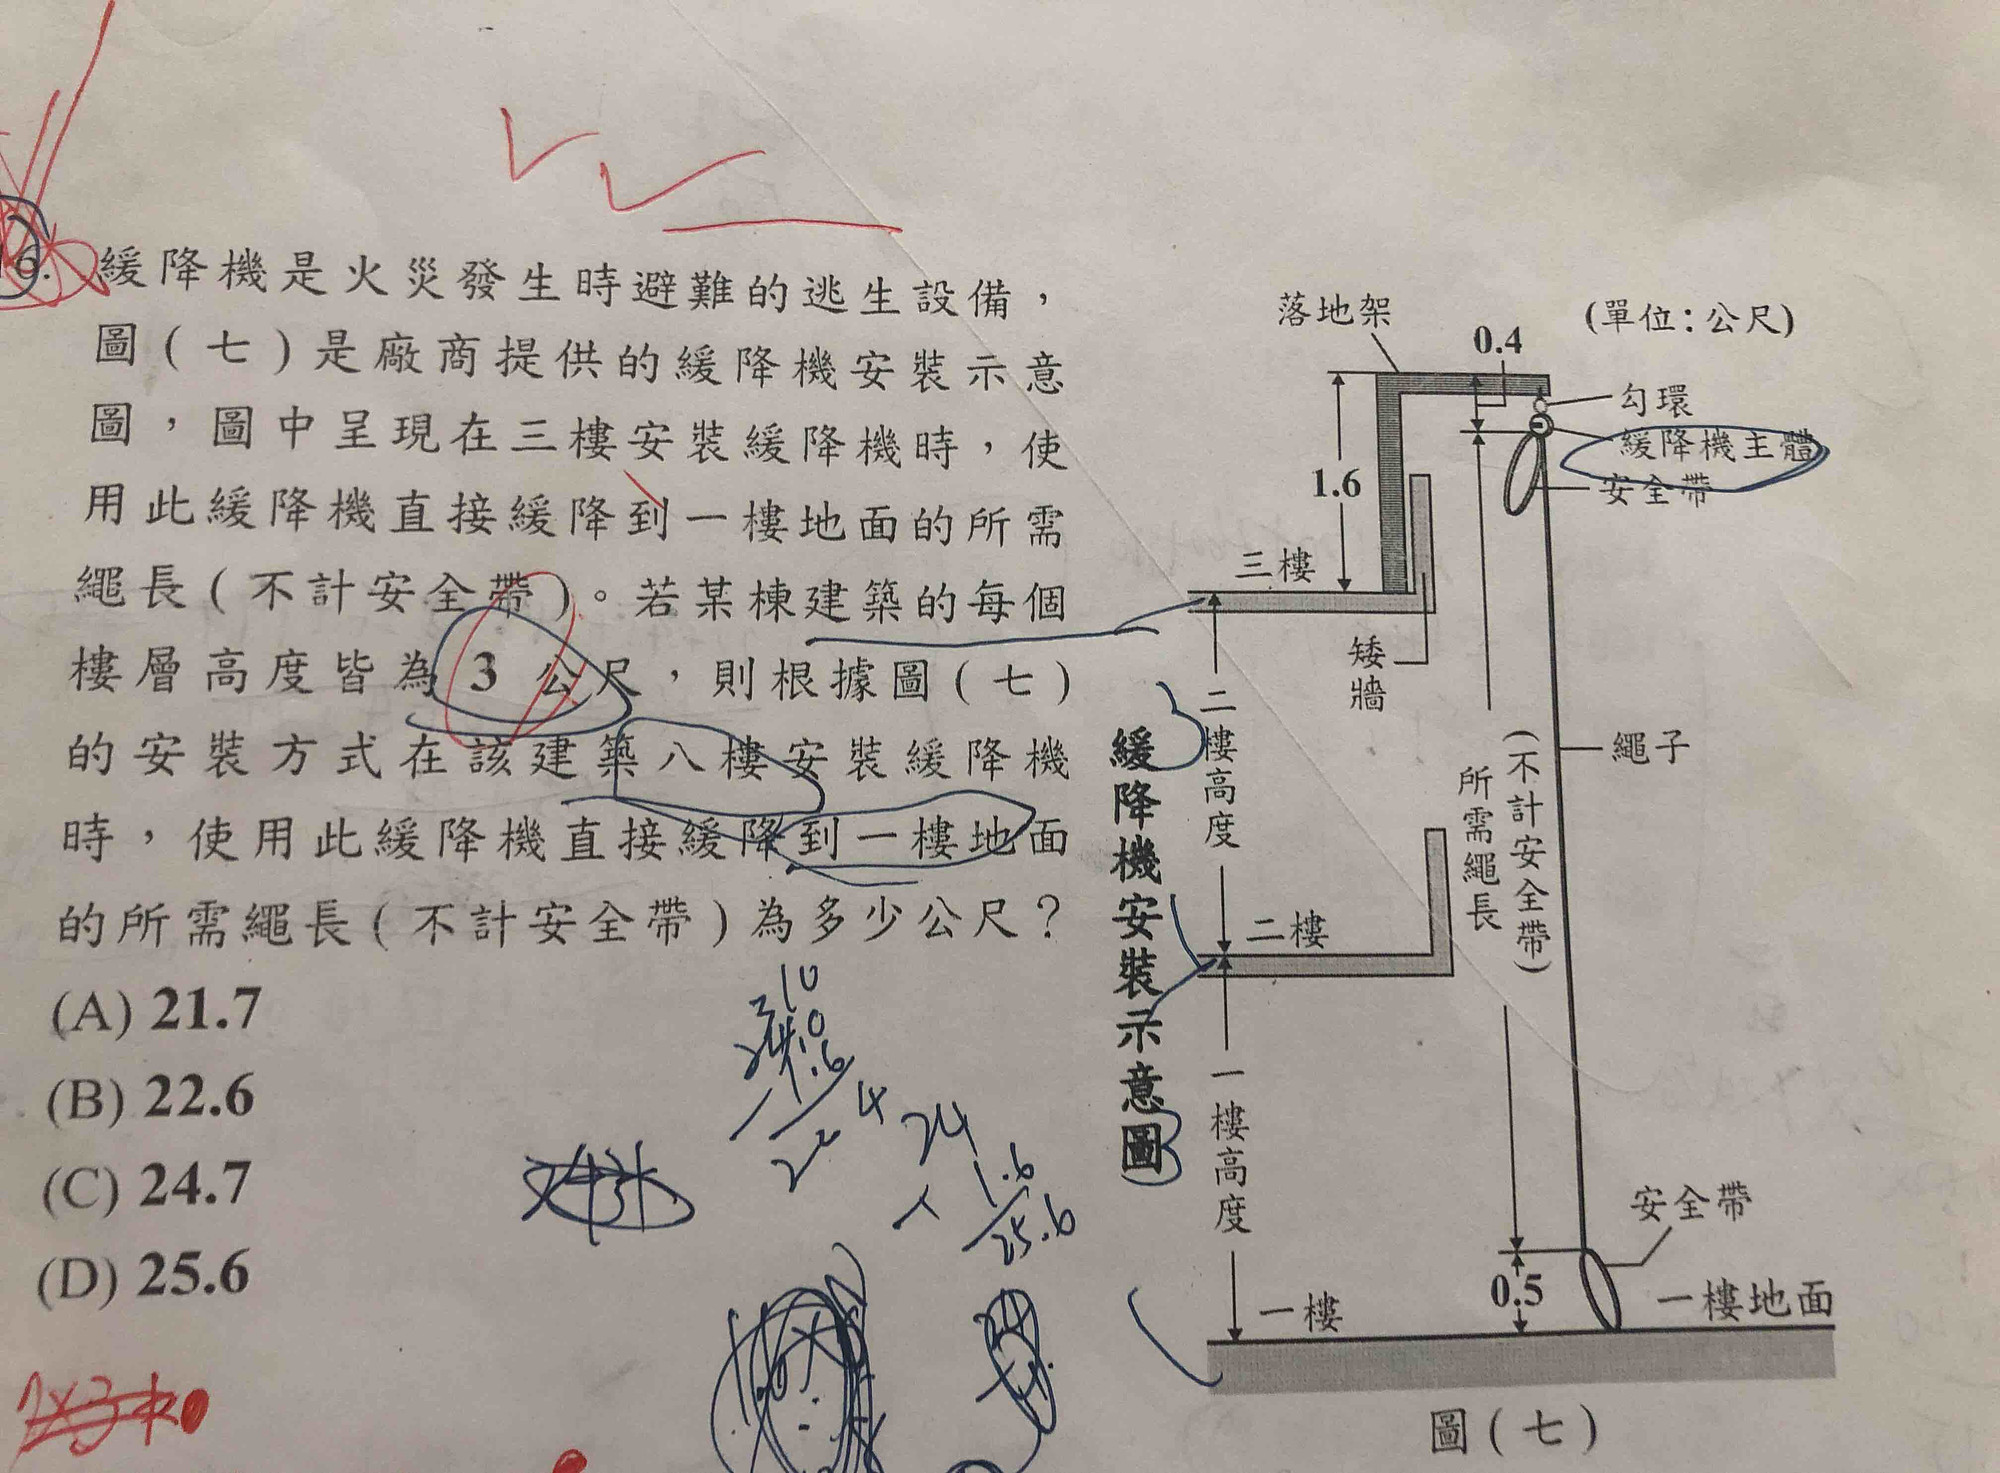 6. 緩降機是火災發生時避難的逃生設備，
圖(七)是廠商提供的緩降機安裝示意
圖，圖中呈現在三樓安裝緩降機時，使
用此緩降機直接緩降到一樓地面的所需
繩長(不計安全帶)。若某棟建築的每個
樓層高度皆為 3 公尺，則根據圖(七)
的安裝方式在該建築八樓安裝緩降機
時，使用此緩降機直接緩降到一樓地面
的所需繩長(不計安全帶)為多少公尺？
(A) 21.7
(B) 22.6
(C) 24.7
(D) 25.6
24
1.6
25.6
緩降機安裝示意圖
落地架
(單位：公尺)
0.4
勾環
緩降機主體
安全帶
1.6
三樓
矮牆
二樓高度
繩子
所需繩長
(不計安全帶)
二樓
一樓高度
安全帶
0.5
一樓
一樓地面
圖(七)